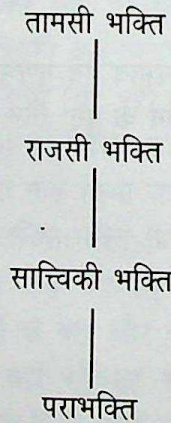 तामसी भक्ति
राजसी भक्ति
सात्त्विकी भक्ति
पराभक्ति